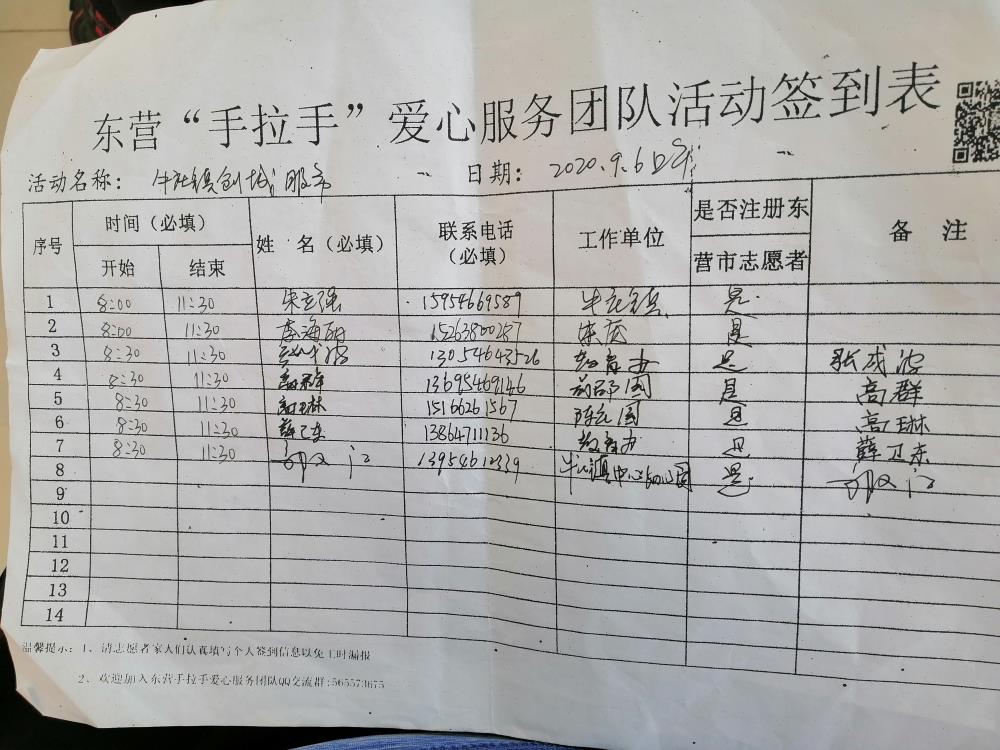 东营“手拉手”爱心服务团队活动签到表
活动名称： 牛社镇创城 服务 日期： 2020.9.6
序号 时间（必填） 姓 名（必填） 联系电话（必填） 工作单位 是否注册东营市志愿者 备 注
开始 结束
1 8:00 11:30 朱立强 15954669589 是
2 8:00 11:30 李海丽 15263800287 是
3 8:30 11:30 13054643526 教育办 是 张成波
4 8:30 11:30 高群 13695469146 是 高群
5 8:30 11:30 高琳 15166261567 是 高琳
6 8:30 11:30 薛卫东 13864711136 教育办 是 薛卫东
7 8:30 11:30 13954612339 中心幼儿园 是
8
9
10
11
12
13
14
温馨提示：1、请志愿者家人们认真填写个人签到信息以免工时漏报
2、欢迎加入东营手拉手爱心服务团队QQ交流群:565573675